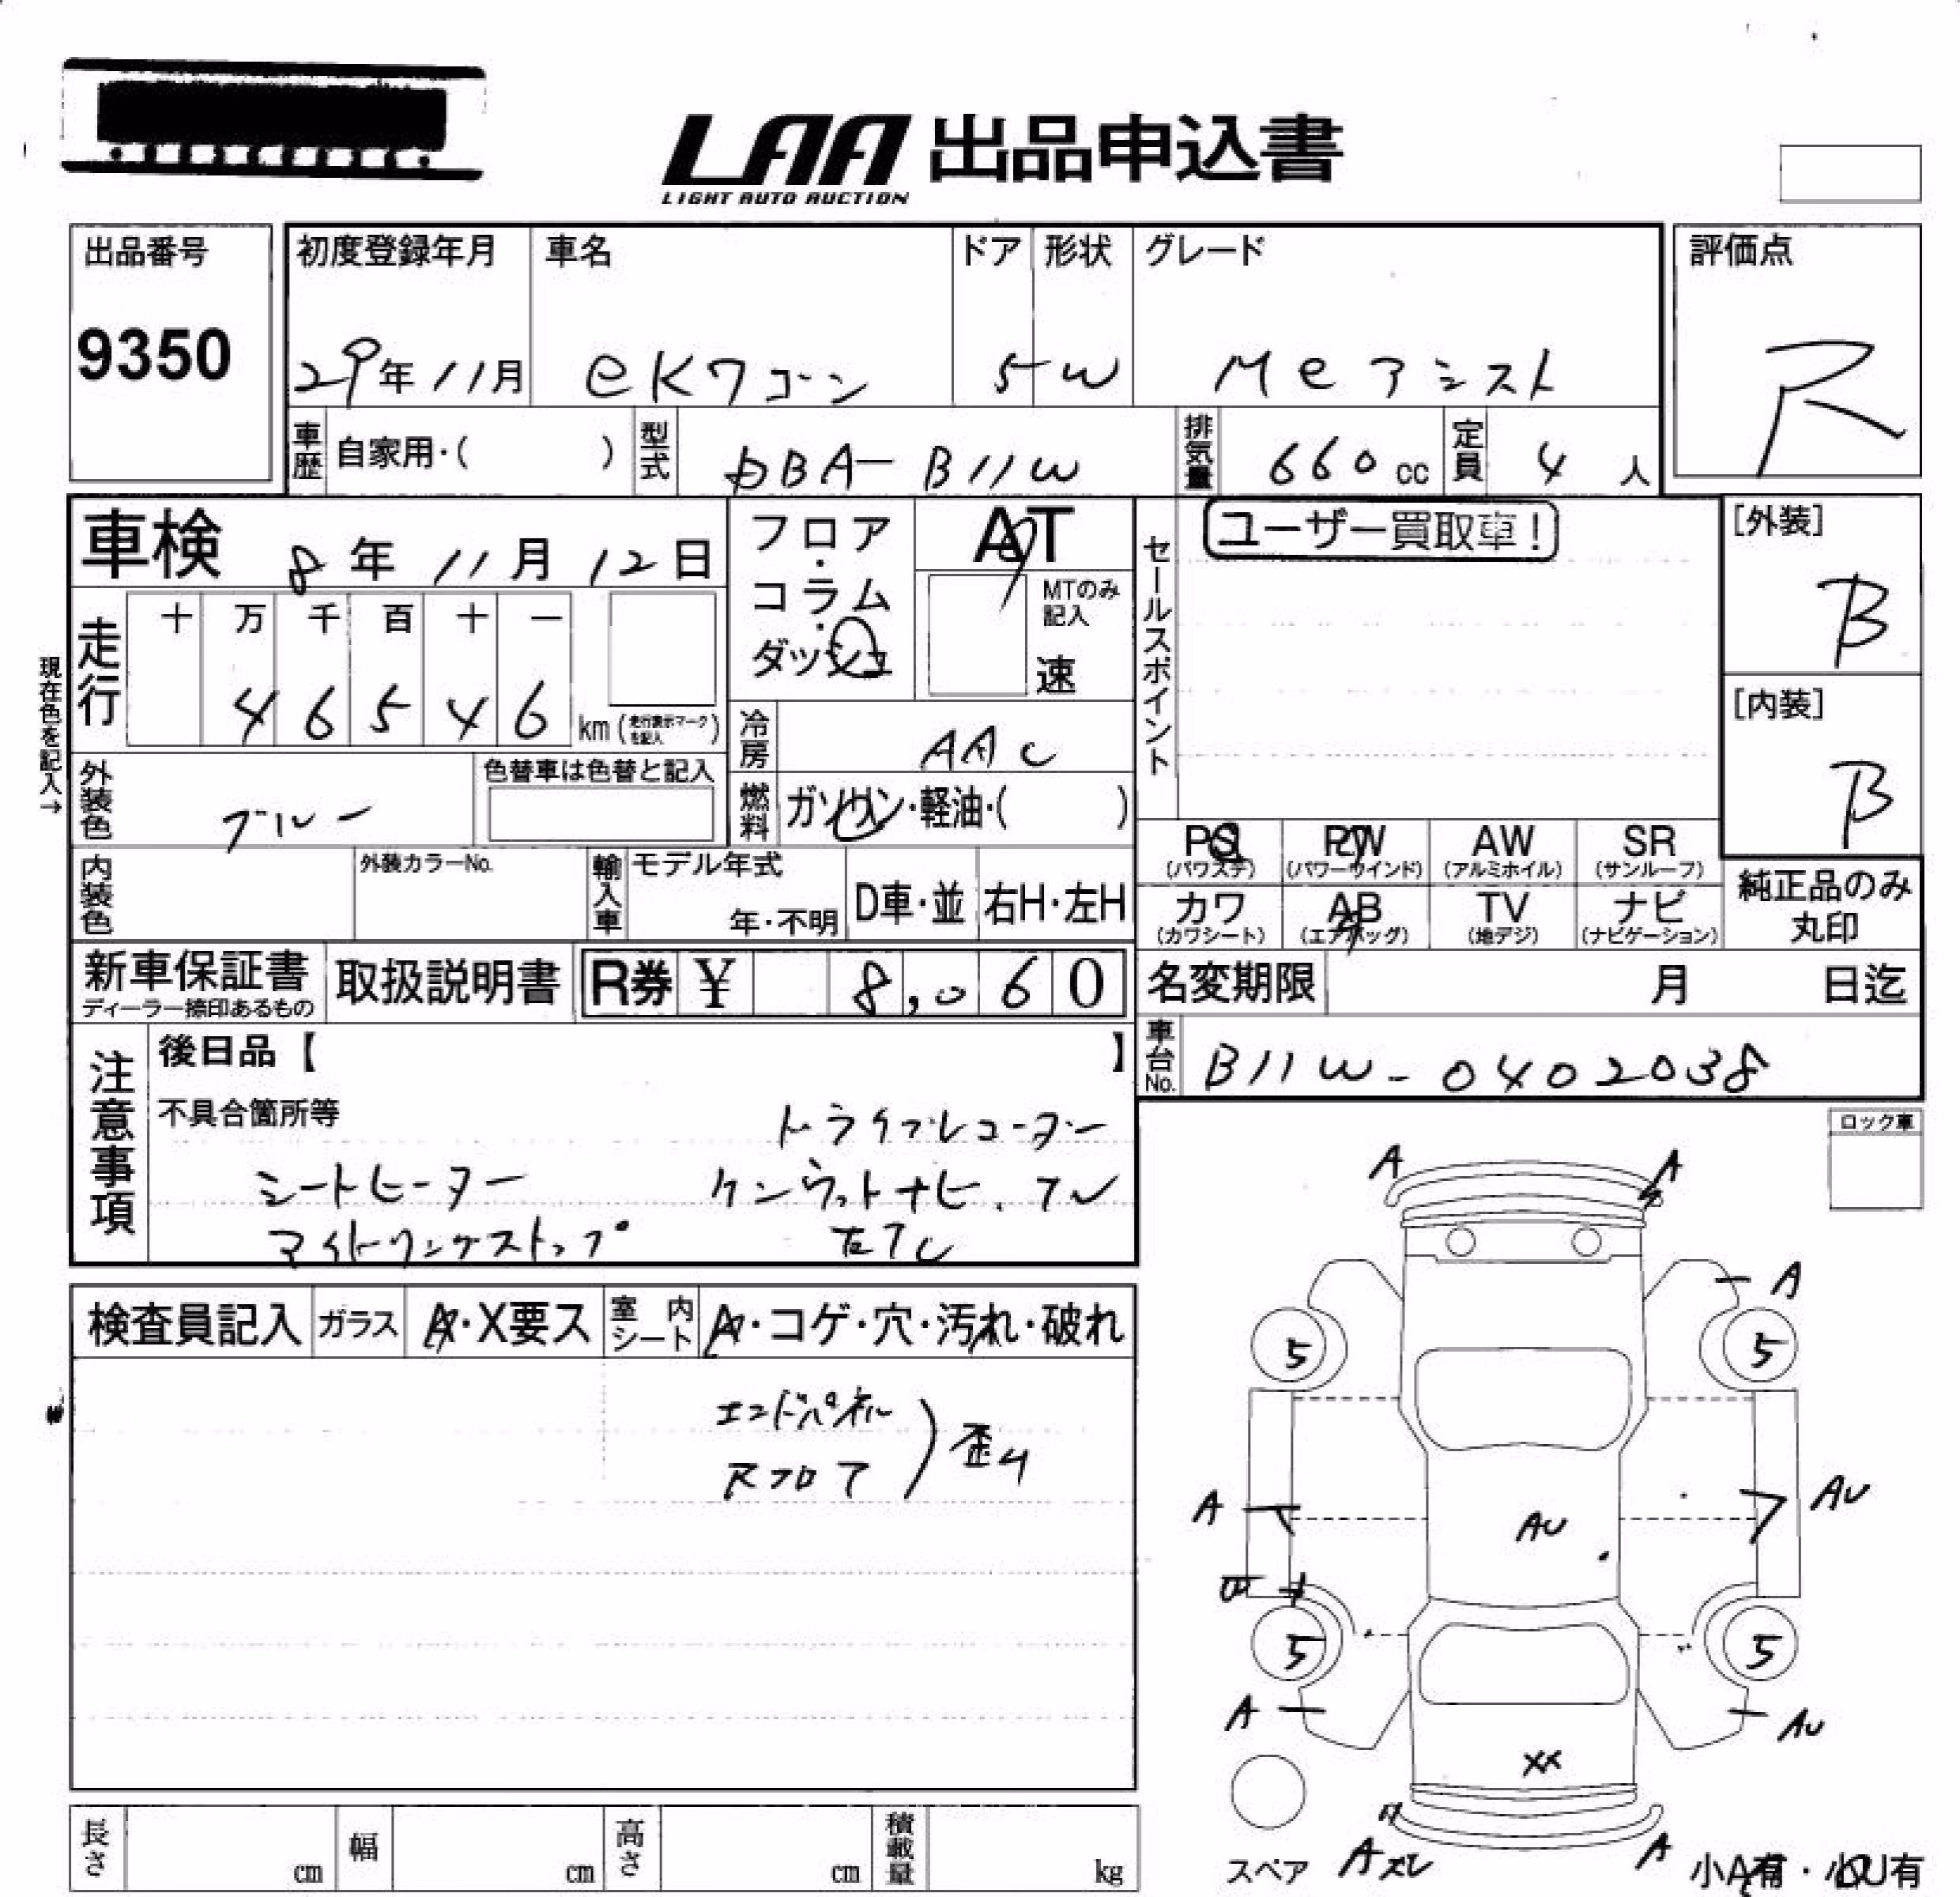 LAA 出品申込書
LIGHT AUTO AUCTION
出品番号
9350
初度登録年月
29年11月
車名
eKワゴン
ドア
5
形状
W
グレード
Meアシスト
評価点
R
車歴 自家用・( )
型式 DBA-B11W
排気量 660 cc
定員 4 人
車検 8年11月12日
フロア・コラム・ダッシュ
AT
MTのみ記入
速
セールスポイント
ユーザー買取車!
[外装]
B
[内装]
B
現在色を記入→
走行
十 万 千 百 十 一
4 6 5 4 6 km (走行表示マークを記入)
冷房 AAC
外装色 ブルー
色替車は色替と記入
燃料 ガソリン・軽油・( )
PS (パワステ)
PW (パワーウインド)
AW (アルミホイル)
SR (サンルーフ)
カワ (カワシート)
AB (エアバッグ)
TV (地デジ)
ナビ (ナビゲーション)
純正品のみ丸印
内装色
外装カラーNo.
輸入車
モデル年式
年・不明
D車・並
右H・左H
新車保証書
ディーラー捺印あるもの
取扱説明書
R券 ¥ 8,060
名変期限 月 日迄
車台No. B11W-0402038
注意事項
後日品【 】
不具合箇所等
ドライブレコーダー
シートヒーター
ケンウットナビ.TV
アイドリングストップ
ロック車
検査員記入
ガラス A・X要ス
室内シート A・コゲ・穴・汚れ・破れ
エンドパネル
Rフロア
) 歪み
A
A
A
5
5
A
AU
AU
5
5
A
AU
XX
A
スペア
小A有・小U有
長さ cm
幅 cm
高さ cm
積載量 kg